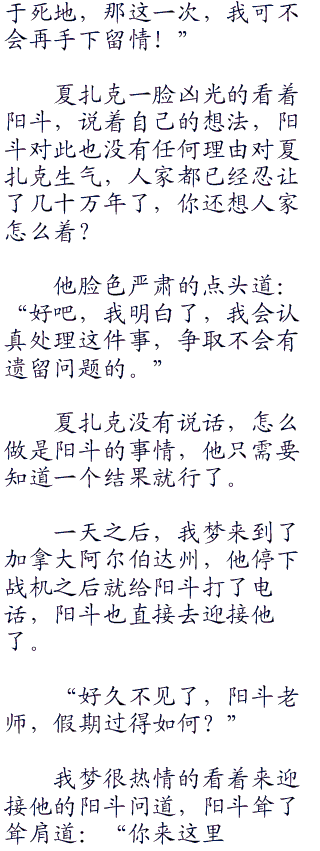 于死地，那这一次，我可不
会再手下留情！”
夏扎克一脸凶光的看着
阳斗，说着自己的想法，阳
斗对此也没有任何理由对夏
扎克生气，人家都已经忍让
了几十万年了，你还想人家
怎么着？
他脸色严肃的点头道：
“好吧，我明白了，我会认
真处理这件事，争取不会有
遗留问题的。”
夏扎克没有说话，怎么
做是阳斗的事情，他只需要
知道一个结果就行了。
一天之后，我梦来到了
加拿大阿尔伯达州，他停下
战机之后就给阳斗打了电
话，阳斗也直接去迎接他
了。
“好久不见了，阳斗老
师，假期过得如何？”
我梦很热情的看着来迎
接他的阳斗问道，阳斗耸了
耸肩道：“你来这里